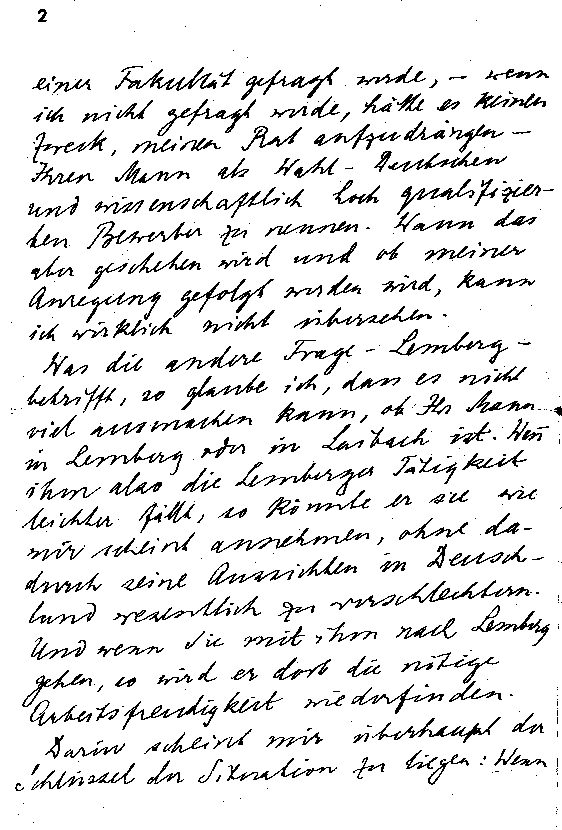 2
einer Fakultät gefragt werde, – wenn
ich nicht gefragt würde, hätte es keinen
Zweck, meinen Rat aufzudrängen –
Ihren Mann als Wahl-Deutschen
und wissenschaftlich hoch qualifizier-
ten Bewerber zu nennen. Wann das
aber geschehen wird und ob meiner
Anregung gefolgt werden wird, kann
ich wirklich nicht übersehen.
Was die andere Frage – Lemberg –
betrifft, so glaube ich, dass es nicht
viel ausmachen kann, ob Ihr Mann
in Lemberg oder in Laibach ist. Wenn
ihm also die Lemberger Tätigkeit
leichter fällt, so könnte er sie wie
mir scheint annehmen, ohne da-
durch seine Aussichten in Deutsch-
land wesentlich zu verschlechtern.
Und wenn Sie mit ihm nach Lemberg
gehen, so wird er dort die nötige
Arbeitsfreudigkeit wiederfinden.
Darin scheint mir überhaupt der
Schlüssel der Situation zu liegen: Wenn